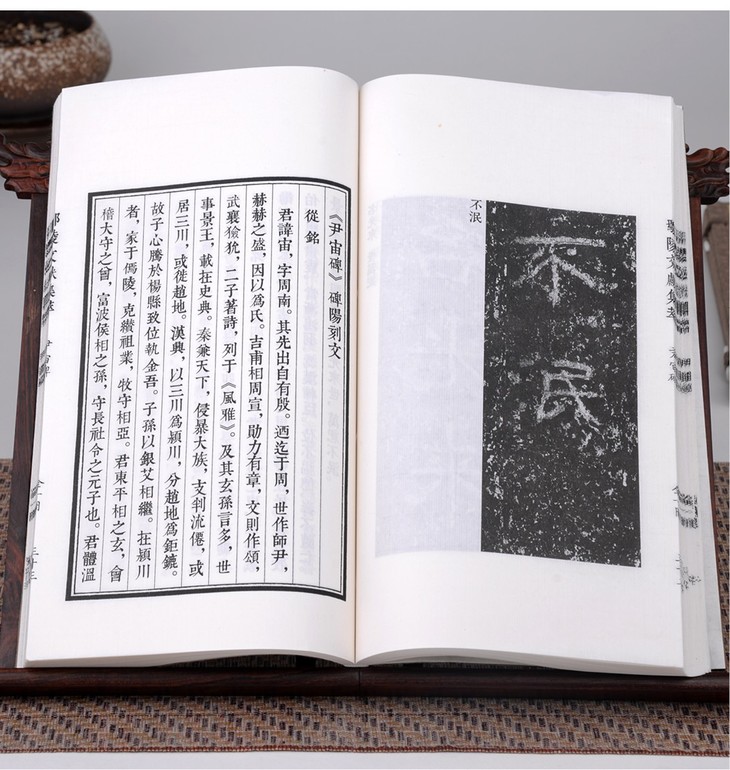 不泯
不泯
《尹宙碑》碑陽刻文
從銘
君諱宙，字周南。其先出自有殷。迺迄于周，世作師尹，
赫赫之盛，因以爲氏。吉甫相周宣，勛力有章，文則作頌，
武襄獫狁，二子著詩，列于《風雅》。及其玄孫言多，世
事景王，載在史典。秦兼天下，侵暴大族，支判流僊，或
居三川，或徙趙地。漢興，以三川爲潁川，分趙地爲鉅鏕。
故子心騰於楊縣致位執金吾。子孫以銀艾相繼。在潁川
者，家于傿陵，克纘祖業，牧守相亞。君東平相之玄，會
稽大守之曾，富波侯相之孫，守長社令之元子也。君體溫